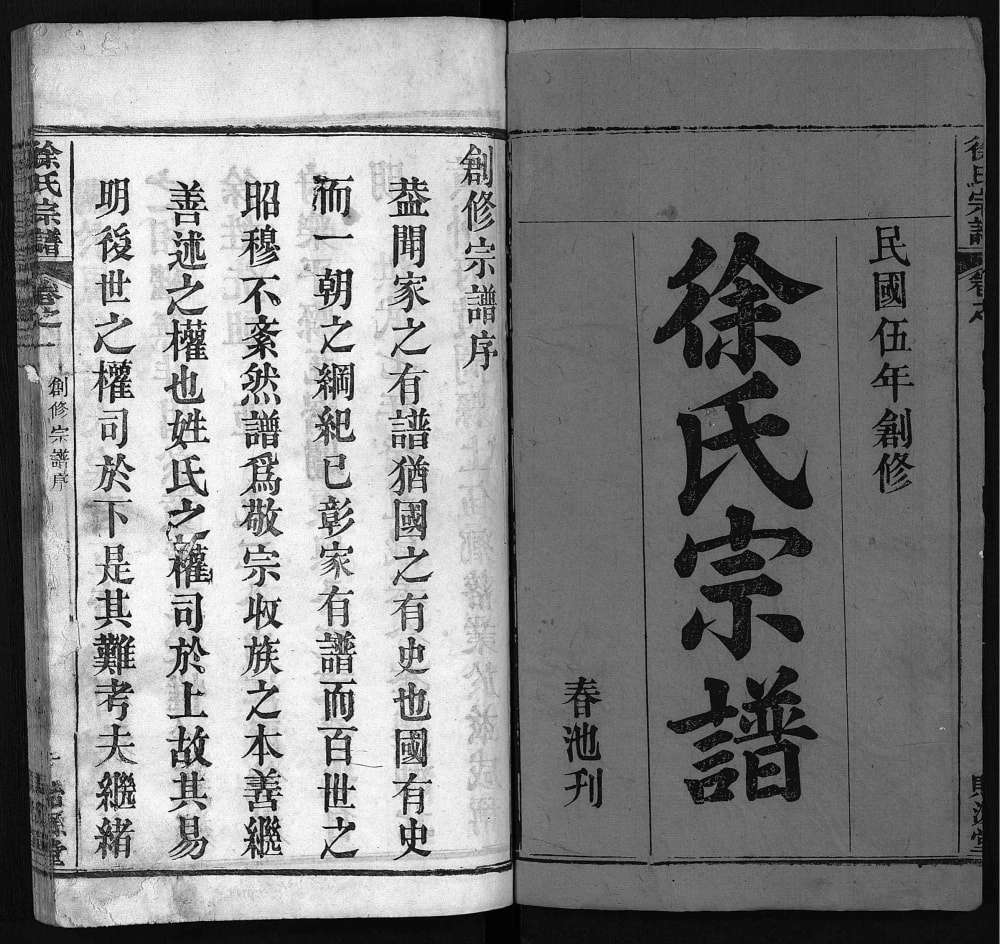 徐氏宗譜
民國伍年創修
徐氏宗譜
春池刊
創修宗譜序
葢聞家之有譜猶國之有史也國有史
而一朝之綱紀已彰家有譜而百世之
昭穆不紊然譜爲敬宗收族之本善繼
善述之權也姓氏之權司於上故其易
明後世之權司於下是其難考夫繼緒
徐氏宗譜
卷之一
創修宗譜序